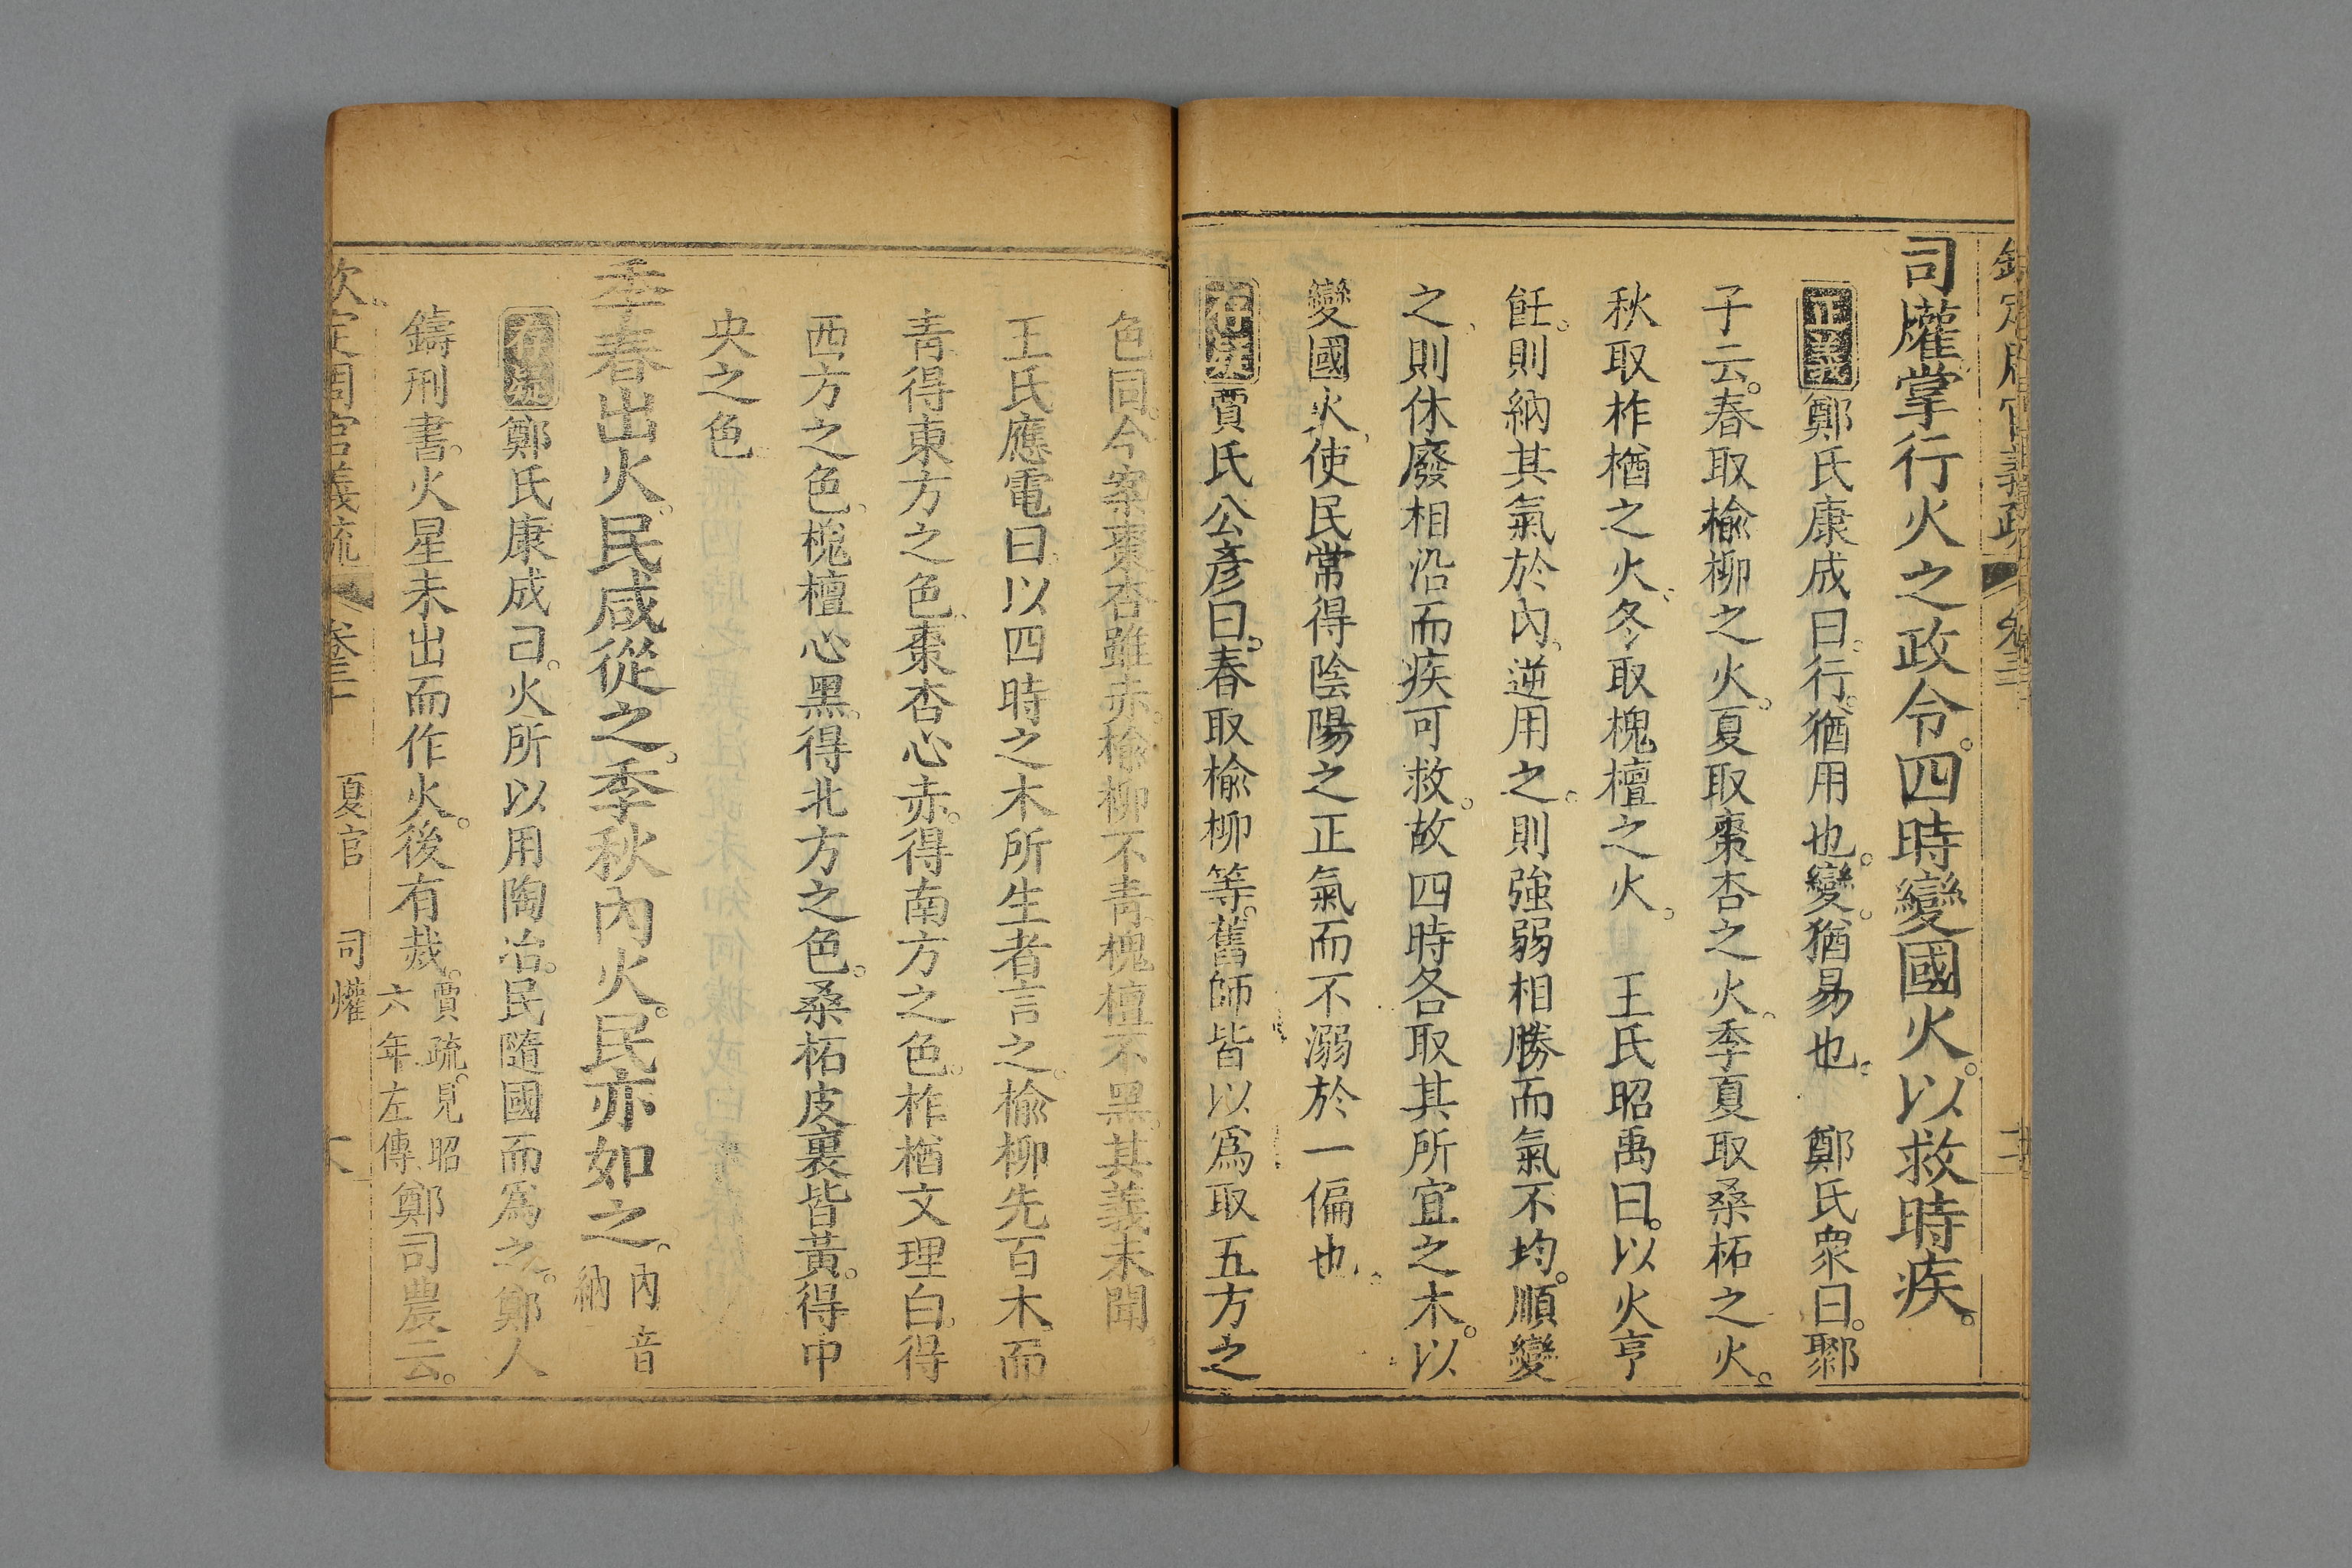 司爟掌行火之政令。四時變國火。以救時疾。
正義鄭氏康成曰。行。猶用也。變。猶易也。　鄭氏衆曰。鄹
子云。春取榆柳之火。夏取棗杏之火。季夏取桑柘之火。
秋取柞楢之火。冬取槐檀之火。　王氏昭禹曰。以火亨
飪。則納其氣於內。逆用之。則強弱相勝而氣不均。順變
之、則休廢相沿而疾可救。故四時各取其所宜之木。以
變國火、使民常得陰陽之正氣而不溺於一偏也。
存疑賈氏公彥曰。春取榆柳等。舊師皆以爲取五方之
色同。今案棗杏雖赤。榆柳不青。槐檀不黑。其義未聞。
王氏應電曰。以四時之木所生者言之。榆柳先百木。而
青。得東方之色。棗杏心赤。得南方之色。柞楢文理白。得
西方之色。槐檀心黑。得北方之色。桑柘皮裏皆黃。得中
央之色。
季春出火。民咸從之。季秋內火。民亦如之。內音納
存疑鄭氏康成曰。火所以用陶冶。民隨國而爲之。鄭人
鑄刑書。火星未出而作火。後有烖。賈疏。見昭六年左傳。鄭司農云。
欽定周官義疏　卷三十　夏官　司爟